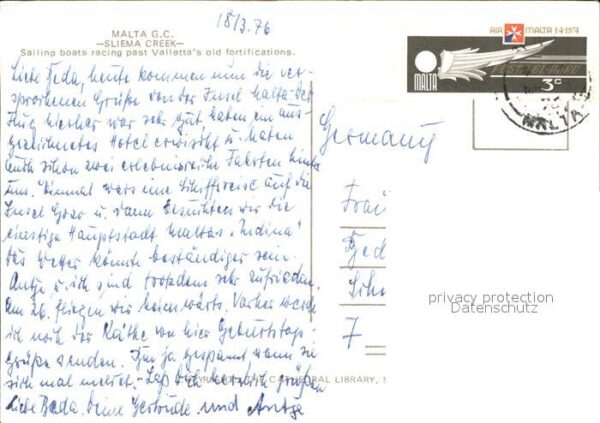 18/3.76
MALTA G.C.
—SLIEMA CREEK—
Sailing boats racing past Valletta's old fortifications.
Liebe Beda, heute kommen nun die ver-
sprochenen Grüße von der Insel Malta. Der
Flug hierher war sehr gut haben ein aus-
gezeichnetes Hotel erwischt u. haten
auch schon zwei erlebnisreiche Fahrten hinter
uns. Einmal wars eine Schiffsreise auf die
Insel Gozo u. dann besuchten wir die
einstige Hauptstadt Maltas "Mdina"
Das Wetter könnte beständiger sein.
Antje u. ich sind trotzdem sehr zufrieden.
Am 26. fliegen wir heimwärts. Vorher werde
ich noch der Käthe von hier Geburtstags-
Grüße senden. Bin ja gespannt wann sie
sich mal meldet. - Laß Dich herzlich grüßen
liebe Beda. Deine Gertrude und Antje
COPYRIGHT THE CATHEDRAL LIBRARY, S
AIR MALTA 1·4·1974
MALTA
3c
MALTA
Germany
Frau
Bed
Scho
7
privacy protection
Datenschutz